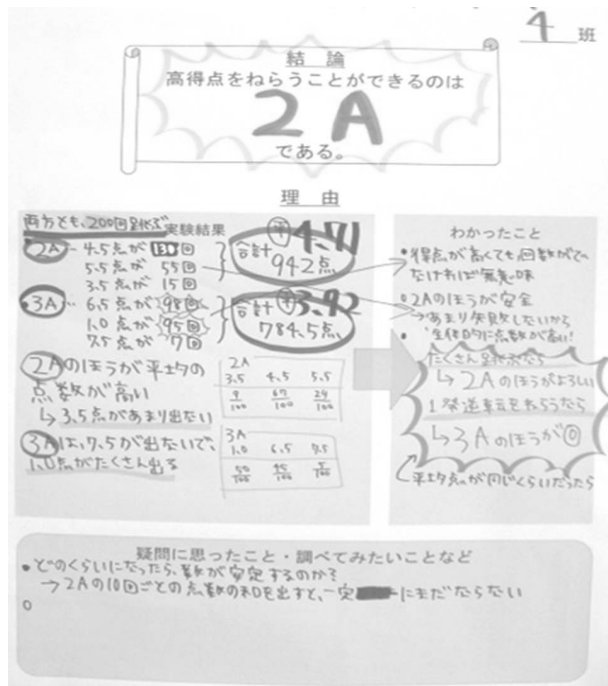 4 班
結 論
高得点をねらうことができるのは
2A
である。
理 由
両方とも、200回跳ぶ 実験結果
2A… 4.5点が 130回
5.5点が 55回
3.5点が 15回
合計 942点 平 4.71
3A… 6.5点が 98回
1.0点が 95回
7.5点が 7回
合計 784.5点 平 3.92
2Aのほうが平均の
点数が高い
↳ 3.5点があまり出ない
2A
3.5 4.5 5.5
9/100 67/100 24/100
3Aは、7.5が出ないで、
1.0点がたくさん出る
3A
1.0 6.5 7.5
50/100 45/100 5/100
わかったこと
•得点が高くても回数がで
なければ無意味
○2Aのほうが安全
→あまり失敗しないから
全体的に点数が高い!
•たくさん跳ぶなら
↳2Aのほうがよろしい
1発逆転をねらうなら
↳3Aのほうが◎
平均点が同じくらいだったら
疑問に思ったこと・調べてみたいことなど
•どのくらいになったら、数が安定するのか?
→2Aの10回ごとの点数の和を出すと、一定にまだならない
○